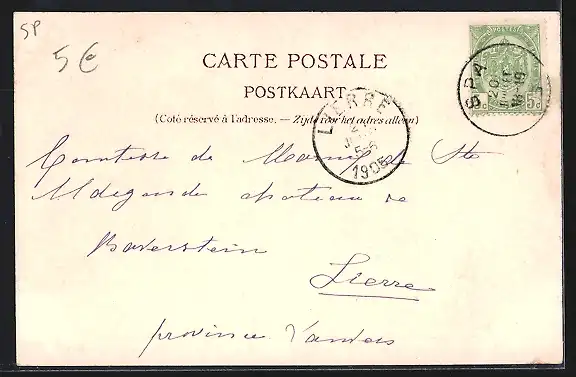 SP
5€
CARTE POSTALE
POSTKAART
(Coté réservé à l'adresse. — Zijde voor het adres alleen)
LIERRE
1905
SPA
5c
Comtesse de Marnix de Ste
Aldegonde chateau de
Boverstein
Lierre
province d'Anvers